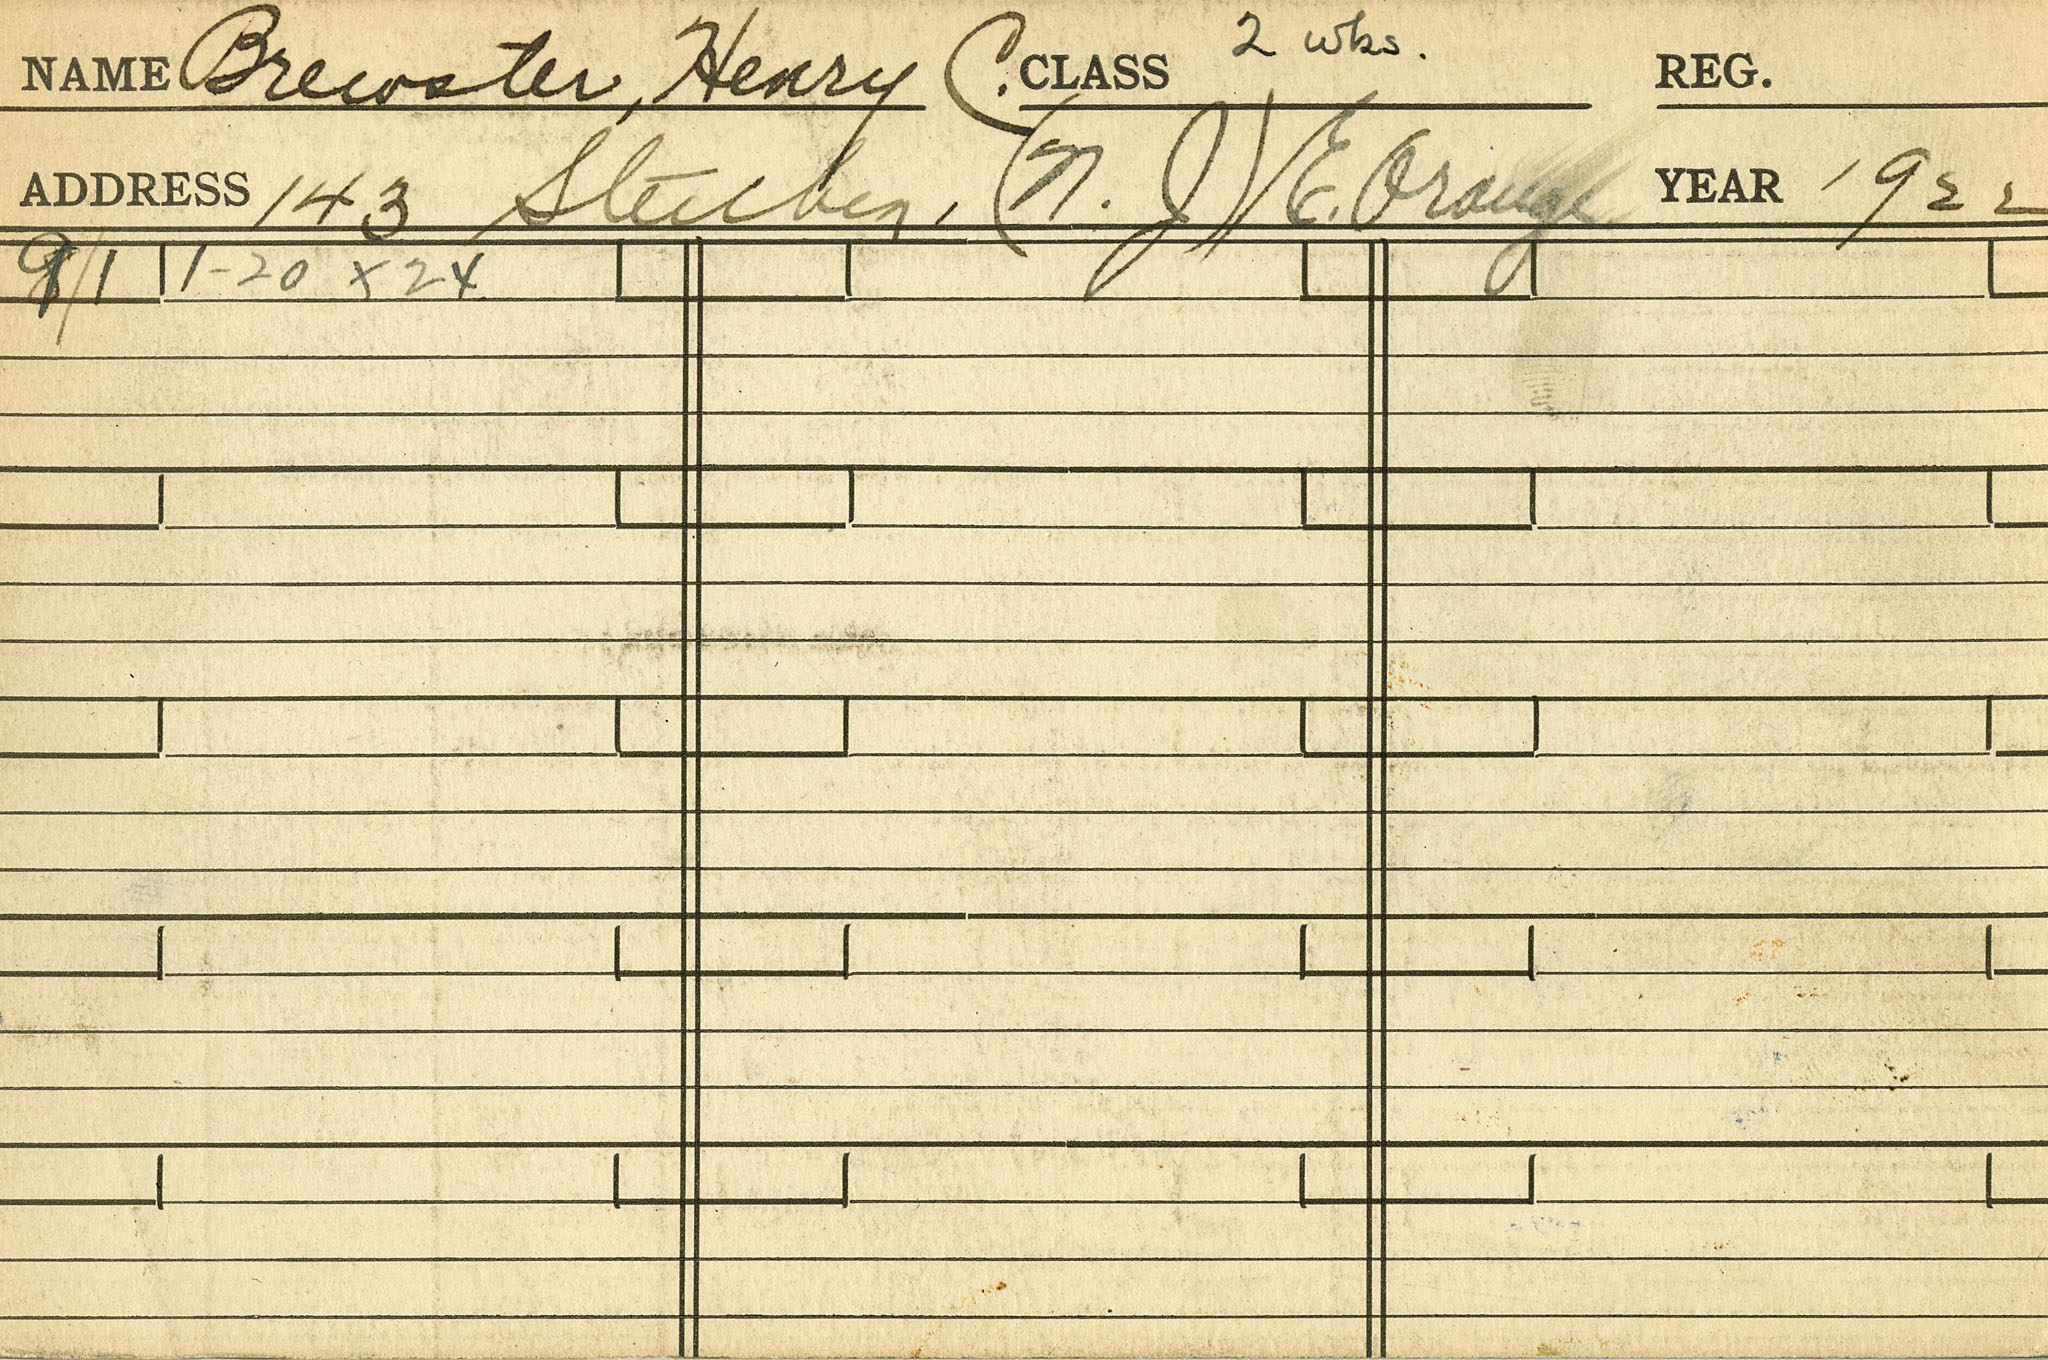 NAME Brewster, Henry C. CLASS 2 wks. REG.
ADDRESS 143 Steuben, (N. J) E. Orange YEAR 1922
9/1 1-20 x 24